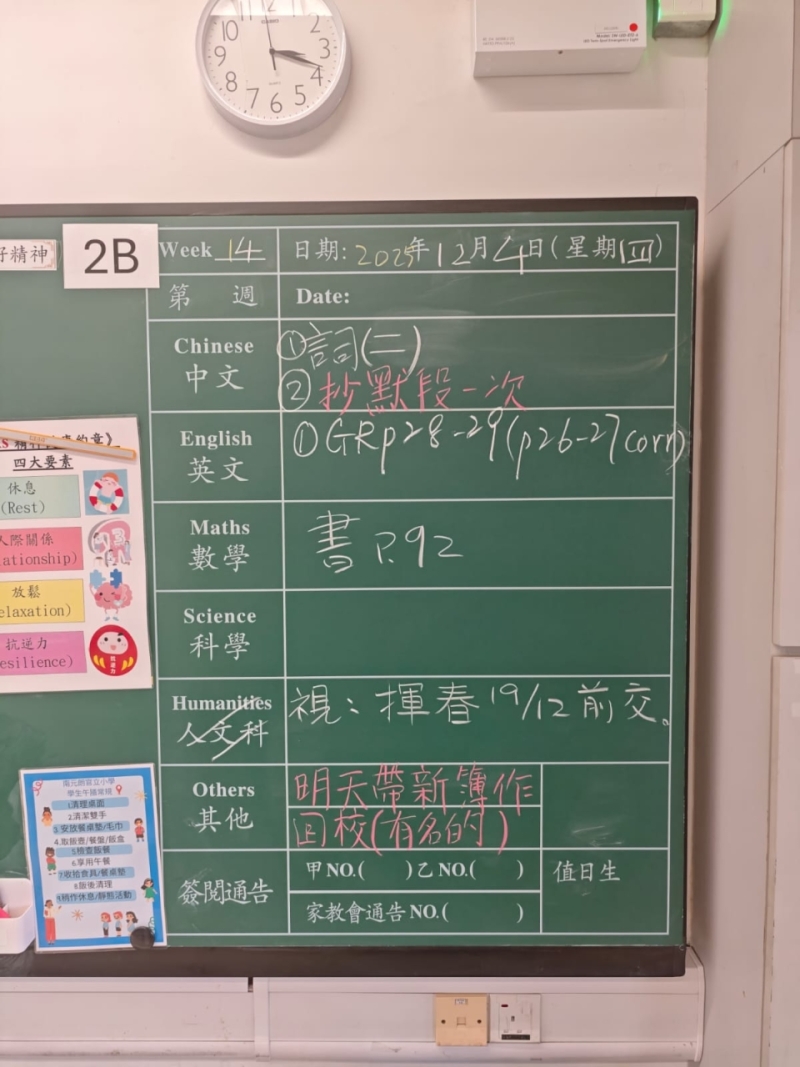 12 1 2 3 4 5 6 7 8 9 10
好精神
2B
Week 14 日期: 2025年12月4日(星期四)
第 週 Date:
Chinese 中文
①詞(二)
②抄默段一次
English 英文
①GRp28-29(p26-27corr)
Maths 數學
書P.92
Science 科學
Humanities 人文科
視: 揮春19/12前交。
Others 其他
明天帶新簿作
回校(有名的)
簽閱通告
甲NO.( )乙NO.( )
家教會通告NO.( )
值日生
四大要素
休息
(Rest)
人際關係
放鬆
抗逆力
學生午膳常規
1.清理桌面
2.清潔雙手
3.安放餐桌墊/毛巾
4.取飯壺/餐盤/飯盒
5.檢查飯餐
6.享用午餐
7.收拾食具/餐桌墊
8.飯後清理
9.稍作休息/靜態活動